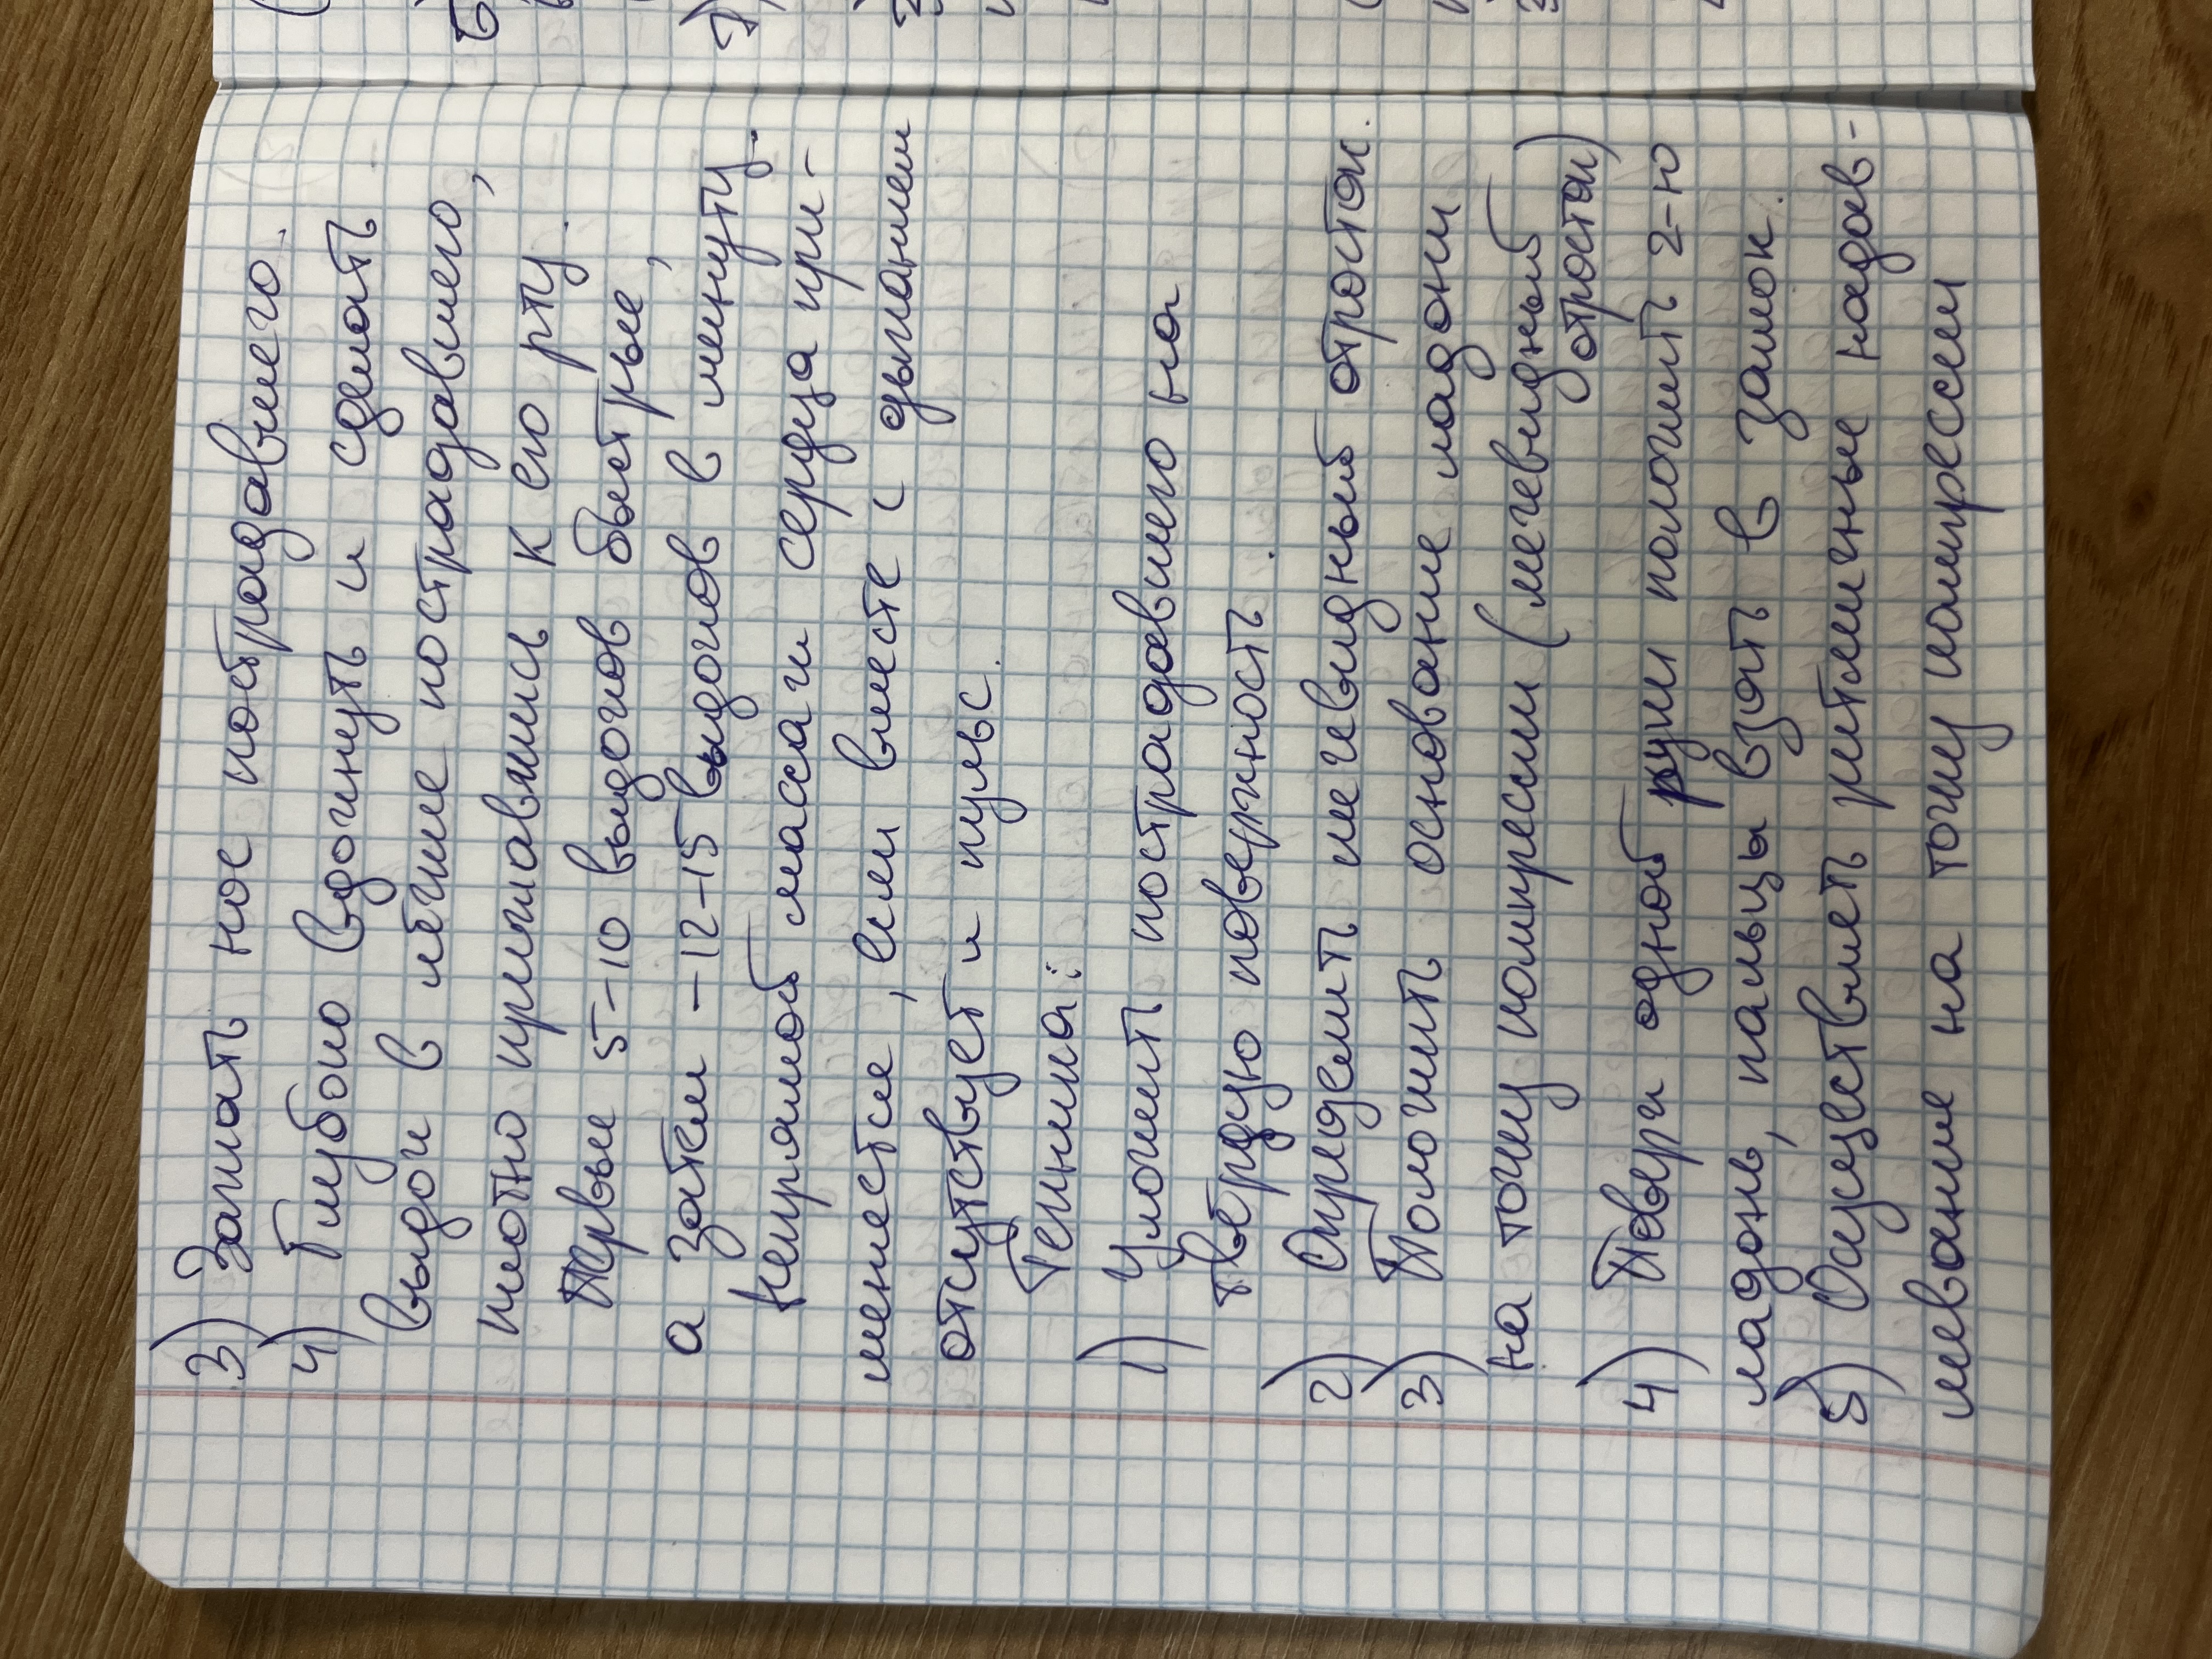 3) Зажать нос пострадавшего.
4) Глубоко вдохнуть и сделать
выдох в лёгкие пострадавшего,
плотно прижавшись к его рту.
Первые 5-10 выдохов быстрые,
а затем - 12-15 выдохов в минуту.
Непрямой массаж сердца при-
меняется, если вместе с дыханием
отсутствует и пульс.
Техника:
1) Уложить пострадавшего на
твёрдую поверхность.
2) Определить мечевидный отросток.
3) Положить основание ладони
на точку компрессии (мечевидный
отросток)
4) Поверх одной руки положить 2-ю
ладонь, пальцы взять в замок.
5) Осуществлять ритмичные надав-
ливание на точку компрессии